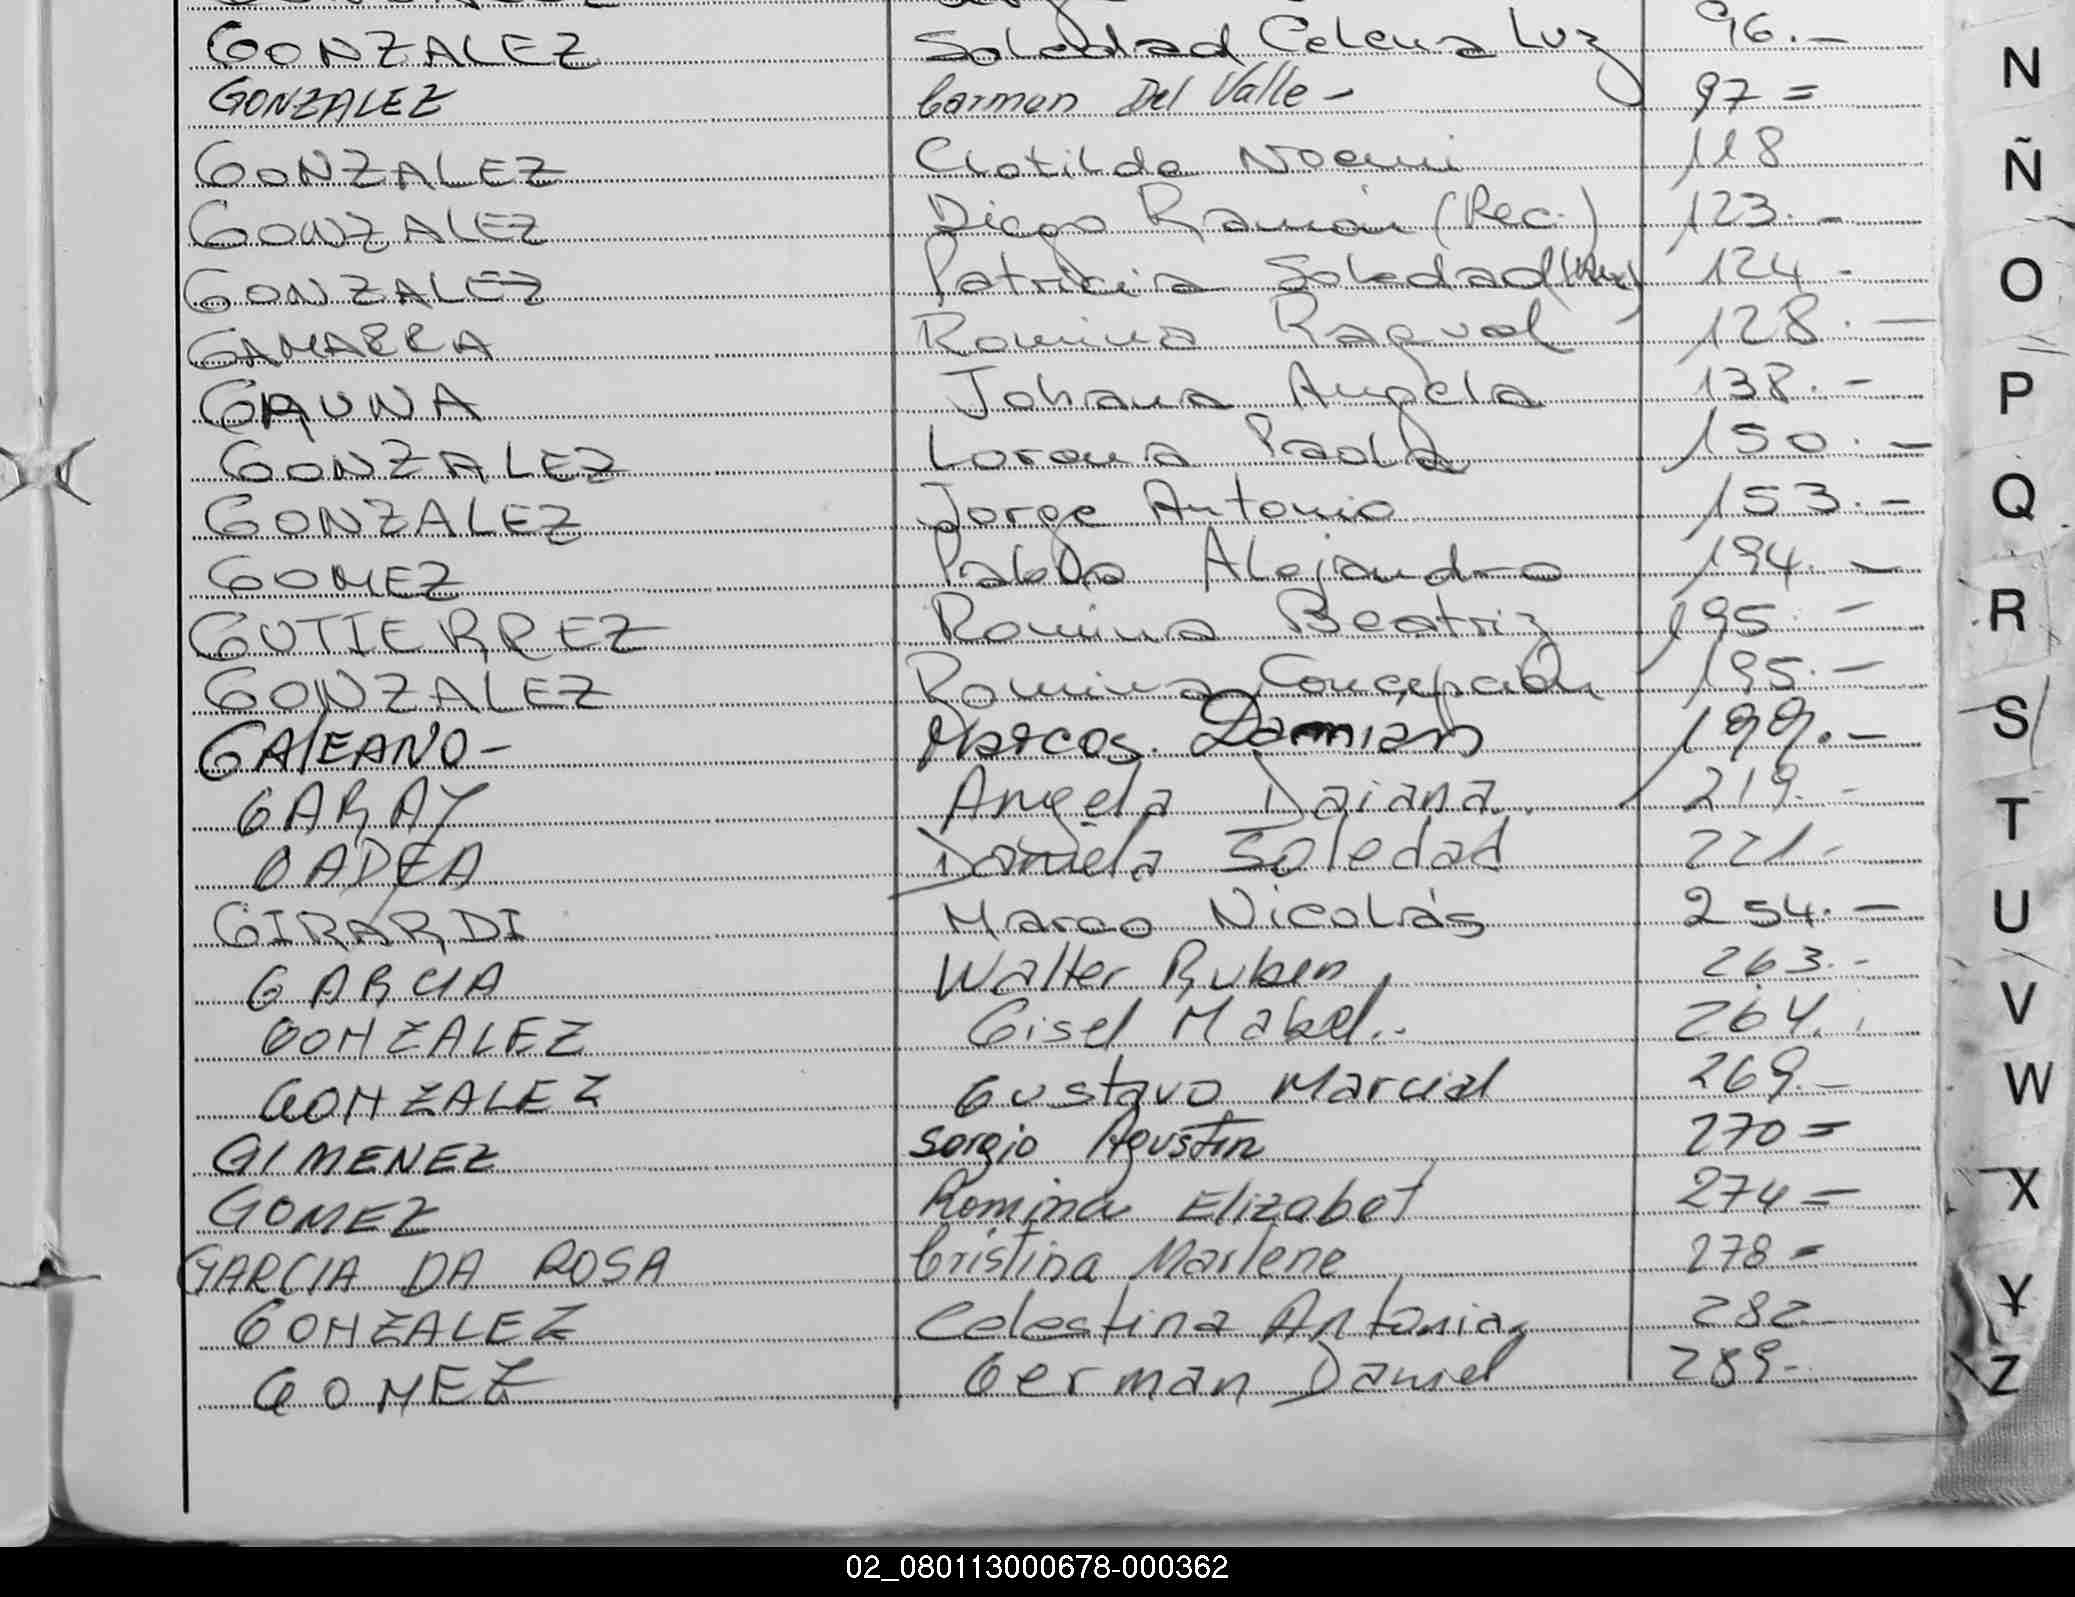 GONZALEZ Soledad Celena Luz 96.-
GONZALEZ Carmen Del Valle - 97 =
GONZALEZ Clotilde Noemi 118
GONZALEZ Diego Ramón (Rec.) 123.-
GONZALEZ Patricia Soledad 124 -
GAMARRA Romina Raquel 128.-
GAUNA Johana Angela 138.-
GONZALEZ Lorena Paola 150.-
GONZALEZ Jorge Antonio 153.-
GOMEZ Pablo Alejandro 194.-
GUTIERREZ Romina Beatriz 195.-
GONZALEZ Romina Concepción 195.-
GALEANO - Marcos Damian 199.-
GARAY Angela Daiana 219.-
GADEA Daniela Soledad 221.-
GIRARDI Marco Nicolás 254.-
GARCIA Walter Ruben 263.-
GONZALEZ Gisel Mabel.. 264.
GONZALEZ Gustavo Marcial 269.-
GIMENEZ Sergio Agustin 270 =
GOMEZ Romina Elizabet 274 =
GARCIA DA ROSA Cristina Marlene 278 =
GONZALEZ Celestina Antonia 282-
GOMEZ German Daniel 289.-
N
Ñ
O
P
Q
R
S
T
U
V
W
X
Y
Z
02_080113000678-000362